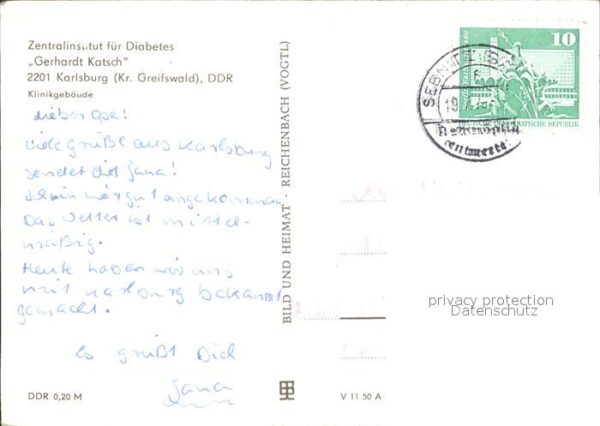 Zentralinstitut für Diabetes
„Gerhardt Katsch"
2201 Karlsburg (Kr. Greifswald), DDR
Klinikgebäude
Lieber Opa!
Viele Grüße aus Karlsburg
sendet dir Jana!
bin gut angekommen
Das Wetter ist mittel-
mäßig.
Heute haben wir uns
mit Karlsburg bekannt
gemacht.
Es grüßt Dich
Jana
DDR 0,20 M
BILD UND HEIMAT · REICHENBACH (VOGTL)
V 11 50 A
10
DEUTSCHE DEMOKRATISCHE REPUBLIK
SEBNITZ
Nachträglich
entwertet
privacy protection
Datenschutz